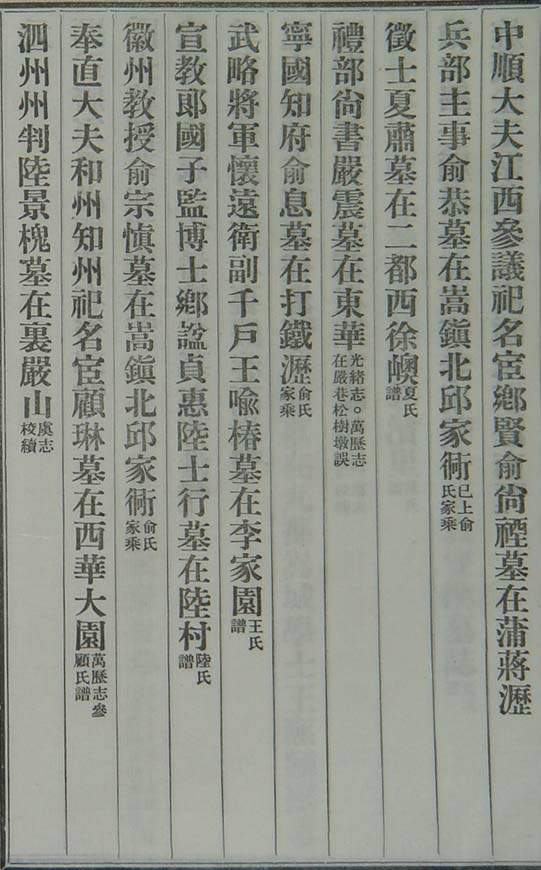 中順大夫江西參議祀名宦鄕賢俞尙禋墓在蒲蔣瀝
兵部主事俞恭墓在嵩鎭北邱家衖已上俞氏家乘
徵士夏肅墓在二都西徐㠗夏氏譜
禮部尙書嚴震墓在東華光緖志○萬歷志在嚴巷松樹墩誤
寧國知府俞息墓在打鐵瀝俞氏家乘
武略將軍懷遠衛副千戶王喩椿墓在李家園王氏譜
宣敎郞國子監博士鄕諡貞惠陸士行墓在陸村陸氏譜
徽州敎授俞宗愼墓在嵩鎭北邱家衖俞氏家乘
奉直大夫和州知州祀名宦顧琳墓在西華大園萬歷志參顧氏譜
泗州州判陸景槐墓在裏嚴山虞志校續